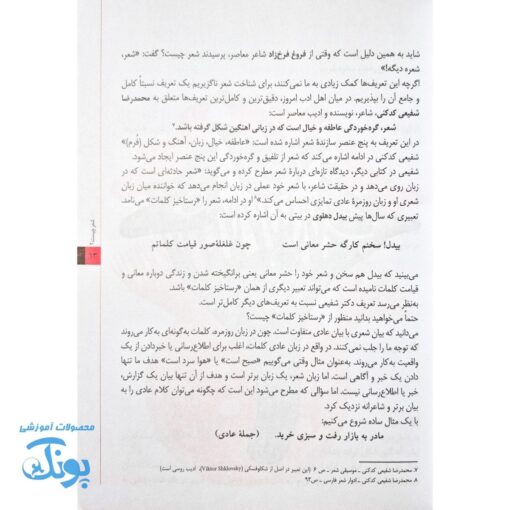 شاید به همین دلیل است که وقتی از فروغ فرخ‌زاد شاعر معاصر، پرسیدند شعر چیست؟ گفت: «شعر،
شعره دیگه!»
اگرچه این تعریف‌ها کمک زیادی به ما نمی‌کنند، برای شناخت شعر ناگزیریم یک تعریف نسبتاً کامل
و جامع آن را بپذیریم. در میان اهل ادب امروز، دقیق‌ترین و کامل‌ترین تعریف‌ها متعلق به محمدرضا
شفیعی کدکنی، شاعر، نویسنده و ادیب معاصر است:
شعر، گره‌خوردگی عاطفه و خیال است که در زبانی آهنگین شکل گرفته باشد.۷
در این تعریف به پنج عنصر سازندهٔ شعر اشاره شده است: «عاطفه، خیال، زبان، آهنگ و شکل (فُرم)»
شفیعی کدکنی در ادامه اشاره می‌کند که شعر از تلفیق و گره‌خوردگی این پنج عنصر ایجاد می‌شود.
شفیعی در کتابی دیگر، دیدگاه تازه‌ای دربارهٔ شعر مطرح کرده و می‌گوید: «شعر حادثه‌ای است که در
زبان روی می‌دهد و در حقیقت شاعر، با شعر خود عملی در زبان انجام می‌دهد که خواننده میان زبان
شعری او و زبان روزمرهٔ عادی تمایزی احساس می‌کند.»۸ او در ادامه، شعر را «رستاخیز کلمات» می‌نامد.
تعبیری که سال‌ها پیش بیدل دهلوی در بیتی به آن اشاره کرده است:
بیدل! سخنم کارگه حشر معانی است چون غلغلهٔ صور قیامت کلماتم
می‌بینید که بیدل هم سخن و شعر خود را حشر معانی یعنی برانگیخته شدن و زندگی دوباره معانی و
قیامت کلمات نامیده است که می‌تواند تعبیر دیگری از همان «رستاخیز کلمات» باشد.
به‌نظر می‌رسد تعریف دکتر شفیعی نسبت به تعریف‌های دیگر کامل‌تر است.
حتماً می‌خواهید بدانید منظور از «رستاخیز کلمات» چیست؟
می‌دانید که بیان شعری با بیان عادی متفاوت است. چون در زبان روزمره، کلمات به‌گونه‌ای به‌کار می‌روند
که توجه ما را جلب نمی‌کنند. در واقع در زبان عادی کلمات، اغلب برای اطلاع‌رسانی یا خبردادن از یک
واقعیت به‌کار می‌روند. به‌عنوان مثال وقتی می‌گوییم «صبح است» یا «هوا سرد است» هدف ما تنها
دادن یک خبر و آگاهی است. اما زبان شعر، یک زبان برتر است و هدف از آن تنها بیان یک گزارش،
خبر یا اطلاع‌رسانی نیست. اما سؤالی که مطرح می‌شود این است که چگونه می‌توان کلام عادی را به
بیان برتر و شاعرانه نزدیک کرد.
با یک مثال ساده شروع می‌کنیم:
مادر به بازار رفت و سبزی خرید. (جملهٔ عادی)
۷. محمدرضا شفیعی کدکنی ـ موسیقی شعر ـ ص ۶ (این تعبیر در اصل از شکلوفسکی (Viktor Shklovsky)، ادیب روسی است)
۸. محمدرضا شفیعی کدکنی ـ ادوار شعر فارسی ـ ص۹۳
شعر چیست؟
۱۳
محصولات آموزشی
پونک